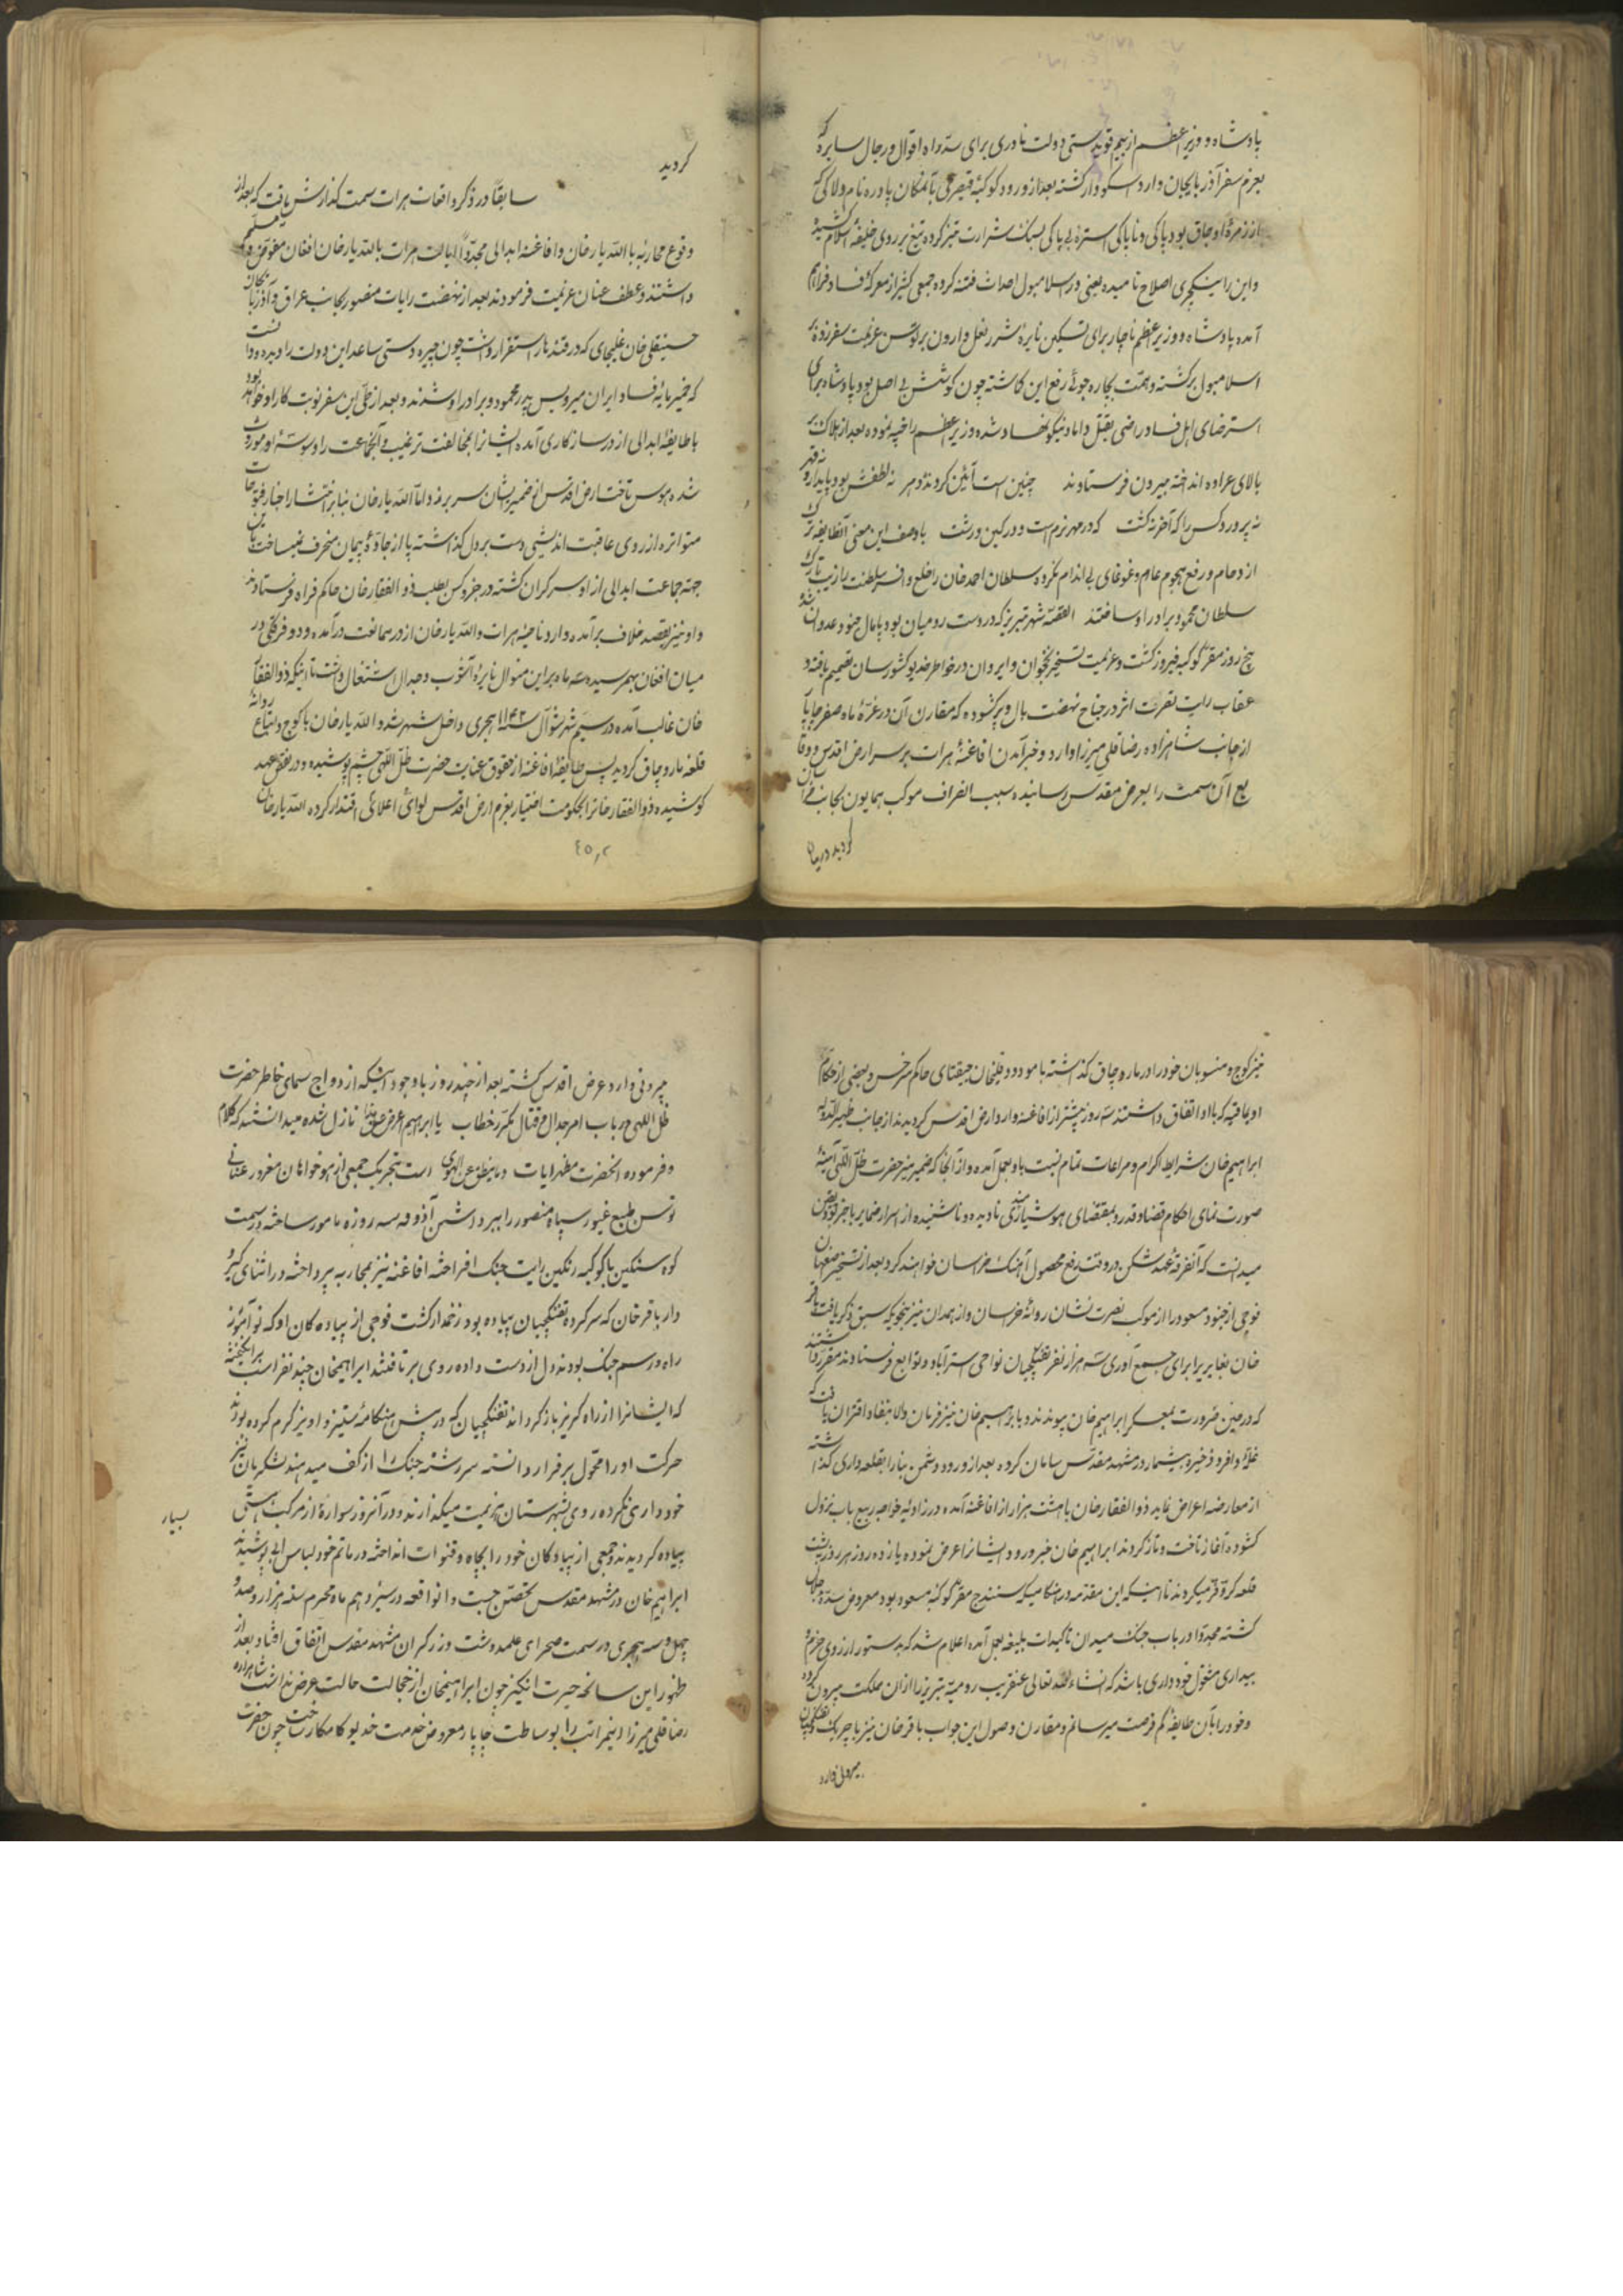 پادشاه و وزیر اعظم از بیم قوی‌دستی دولت نادری برای سد راه اقوال و رجال سایره که
بعزم سفر آذربایجان وارد اسکودار گشته بعد از ورود کوکبهٔ قیصری بآنمکان پادره نام دلاکی که
از زمرهٔ اوجاق بود بپاکی و ناپاکی استرهٔ بی پاکی بسنک شرارت تیز کرده تیغ بر روی خلیفهٔ اسلام کشیده
و این را ینکچری اصلاح نامیده یعنی در اسلامبول احداث فتنه کرده جمعی کثیر از معرکهٔ فساد فراهم
آمده پادشاه و وزیر اعظم ناچار برای تسکین نایره شر نعل وارون بر توسن عزیمت سفر زده به
اسلامبول برگشته و همت بچاره جوئی رفع این کاشته چون کوشش بی اصل بود پادشاه برای
استرضای اهل فساد راضی بقتل داماد نیکو نهاد شده وزیر اعظم را خپه نموده بعد از هلاک بر
بالای عراده انداخته بیرون فرستادند چنین است آئین گردنده دهر نه لطفش بود پایدار و نه قهر
نه پرورد کس را که آخر نکشت که در مهر نرم است و در کین درشت با وصف این معنی آنطایفه ترک
ازدحام و رفع هجوم عام و غوغای بی اندام نکرده سلطان احمد خان را خلع و افسر سلطنت را زیب تارک
سلطان محمود برادر او ساختند القصه شهر تبریز که در دست رومیان بود پامال جنود عدوان شده
پنج روز مقر کوکبهٔ فیروز گشت و عزیمت تسخیر نخجوان و ایروان در خاطر خدیو کشورستان تصمیم یافته و
عقاب رایت نصرت اثر در جناح نهضت بال و پر گشوده که مقارن آن در غرهٔ ماه صفر چاپار
از جانب شاهزاده رضا قلی میرزا وارد و خبر آمدن افاغنهٔ هرات بر سر ارض اقدس و وقا
یع آن سمت را بعرض مقدس رسانیده سبب انصراف موکب همایون بجانب خراسان
گردید در بیان
گردید
سابقاً در ذکر واقعات هرات سمت گذارش یافت که بعد از
وقوع محاربه با الله یار خان و افاغنه ابدالی مجدداً ایالت هرات بالله یار خان افغان مفوض و مسلم
داشتند و عطف عنان عزیمت فرمودند بعد از نهضت رایات منصور بجانب عراق و آذربایجان
حسینقلی خان غلیجای که در قندهار استقرار داشت چون چیره دستی ساعد این دولت را دیده و دانست
که خمیر مایهٔ فساد ایران میرویس پدر محمود و برادر او شدند و بعد از طی این سفر نوبت کار او خواهد بود
با طایفهٔ ابدالی از در سازکاری آمده ایشانرا بمخالفت ترغیب و آنجماعت را وسوسهٔ او مورث
شده هوس تاخت ارض اقدس از ضمیرشان سر بر زد اما الله یار خان بنا بر انتشار اخبار فتوحات
متواتره از روی عاقبت اندیشی دست بر دل گذاشته پا از جادهٔ پیمان منحرف نمیساخت باین
جهة جماعت ابدالی از او سرگران گشته در جزو کس بطلب ذو الفقار خان حاکم فراه فرستادند
و او نیز بقصد خلاف برآمده وارد ناحیهٔ هرات و الله یار خان از در ممانعت درآمده و دو فرقگی در
میان افغان بهم رسیده سه ماه بر این منوال نایرهٔ آشوب و جدال اشتغال داشت تا اینکه ذو الفقار
خان غالب آمده در سیم شهر شوال ۱۱۴۲ هجری داخل شهر شد و الله یار خان با کوچ و اتباع روانهٔ
قلعه ماروچاق گردید پس طایفهٔ افاغنه از حقوق عنایت حضرت ظل اللهی چشم پوشیده و در نقض عهد
کوشیده ذو الفقار خانرا بحکومت اختیار بعزم ارض اقدس لوای اعلای اقتدار کرده الله یار خان
نیز کوچ و منسوبان خود را در ماروچاق گذاشته با مودود قلیخان جیقتای حاکم سرخس و بعضی از حکام
اویماقیه که با او اتفاق داشتند سه روز پیشتر از افاغنه وارد ارض اقدس گردیدند از جانب ظهیر الدوله
ابراهیم خان شرایط اکرام و مراعات تمام نسبت باو بعمل آمده و از آنجا که ضمیر منیر حضرت ظل اللهی آیینهٔ
صورت نمای احکام قضا و قدر و بمقتضای هوشیاری نادیده و ناشنیده از اسرار ضمایر باخبر بودند
میدانست که آنفرقهٔ عهد شکن در وقت رفع محصول آهنگ خراسان خواهند کرد بعد از تسخیر اصفهان
فوجی از جنود مسعود را از موکب نصرت نشان روانهٔ خراسان و از همدان نیز بنحویکه سبق ذکر یافت باقر
خان بغایری را برای جمع آوری سه هزار نفر تفنگچیان نواحی استرآباد و توابع فرستادند مقرر داشتند
که در حین ضرورت بمعسکر ابراهیم خان پیوندند و بابراهیم خان نیز فرمان والا بنفاذ اقتران یافت که
غلهٔ وافر و ذخیرهٔ بیشمار در مشهد مقدس سامان کرده بعد از ورود دشمن بنا را بقلعه داری گذاشته
از معارضه اعراض نماید ذو الفقار خان با هشت هزار از افاغنه آمده در زاویه خواجه ربیع باب نزول
گشوده آغاز تاخت و تاز کردند ابراهیم خان خبر ورود ایشانرا عرض نموده یازده روز هر روز در پشت
قلعه کر و فر میکردند تا اینکه این مقدمه در هنگامیکه سنندج مقر کوکبهٔ مسعود بود معروض سدهٔ جلال
گشته مجدداً در باب جنگ میدان تاکیدات بلیغه بعمل آمده اعلام شد که بدستور از روی حزم و
بیداری مشغول خودداری باشد که انشاء الله تعالی عنقریب رومیه تبریز را از ان مملکت بیرون کرده
و خود را بآن طایفهٔ کم فرصت میرسانم و مقارن وصول این جواب باقر خان نیز با چریک تفنگچیان
بیرونی وارد
بیرونی وارد عرض اقدس گشته بعد از چند روز با وجود اینکه از دواج سمای خاطر حضرت
ظل اللهی در باب امر جدال و قتال مکرر خطاب یا ابراهیم اعرض عن هذا نازل شده میدانستند که کلام
و فرموده آنحضرت مظهر ایات و ما ینطق عن الهوی است بتحریک جمعی از هوخواهان مغرور عنانی
توسن طبع غیور سپاه منصور را ببرداشتن آذوقه سه روزه مامور ساخته در سمت
کوه سنگین با کوکبه رنگین رایت جنگ افراخته افاغنه نیز بمحاربه پرداخته در اثنای گیر و
دار باقر خان که سرکرده تفنگچیان پیاده بود زخمدار گشت فوجی از پیاده کان او که نو آموز
راه و رسم جنگ بودند دل از دست داده روی بر تافتند ابراهیمخان چند نفر اسب برانگیخته
که ایشانرا از راه گریز باز گرداند تفنگچیان که در پیش هنگامهٔ ستیز و آویز گرم کرده بودند
حرکت او را محمول بر فرار دانسته سر رشته جنگ را از کف میدهند لشکریان نیز
خودداری نکرده روی بشهرستان هزیمت میگذارند و در آنروز سوارهٔ از مرکب هستی
بسیار
پیاده گردیدند و جمعی از پیادگان خود را بچاه و قنوات انداخته در ماتم خود لباس آبی پوشیدند
ابراهیم خان در مشهد مقدس تحصن جست و انواقعه در سیزدهم ماه محرم سنه هزار و صد و
چهل و سه هجری در سمت صحرای علمدشت و زرگران مشهد مقدس اتفاق افتاد بعد از
ظهور این سانحه حیرت انگیز چون ابراهیمخان از خجالت حالت عرض نداشت شاهزاده
رضا قلی میرزا اینمراتب را بوساطت چاپار معروض خدمت خدیو کامکار ساخت چون حضرت